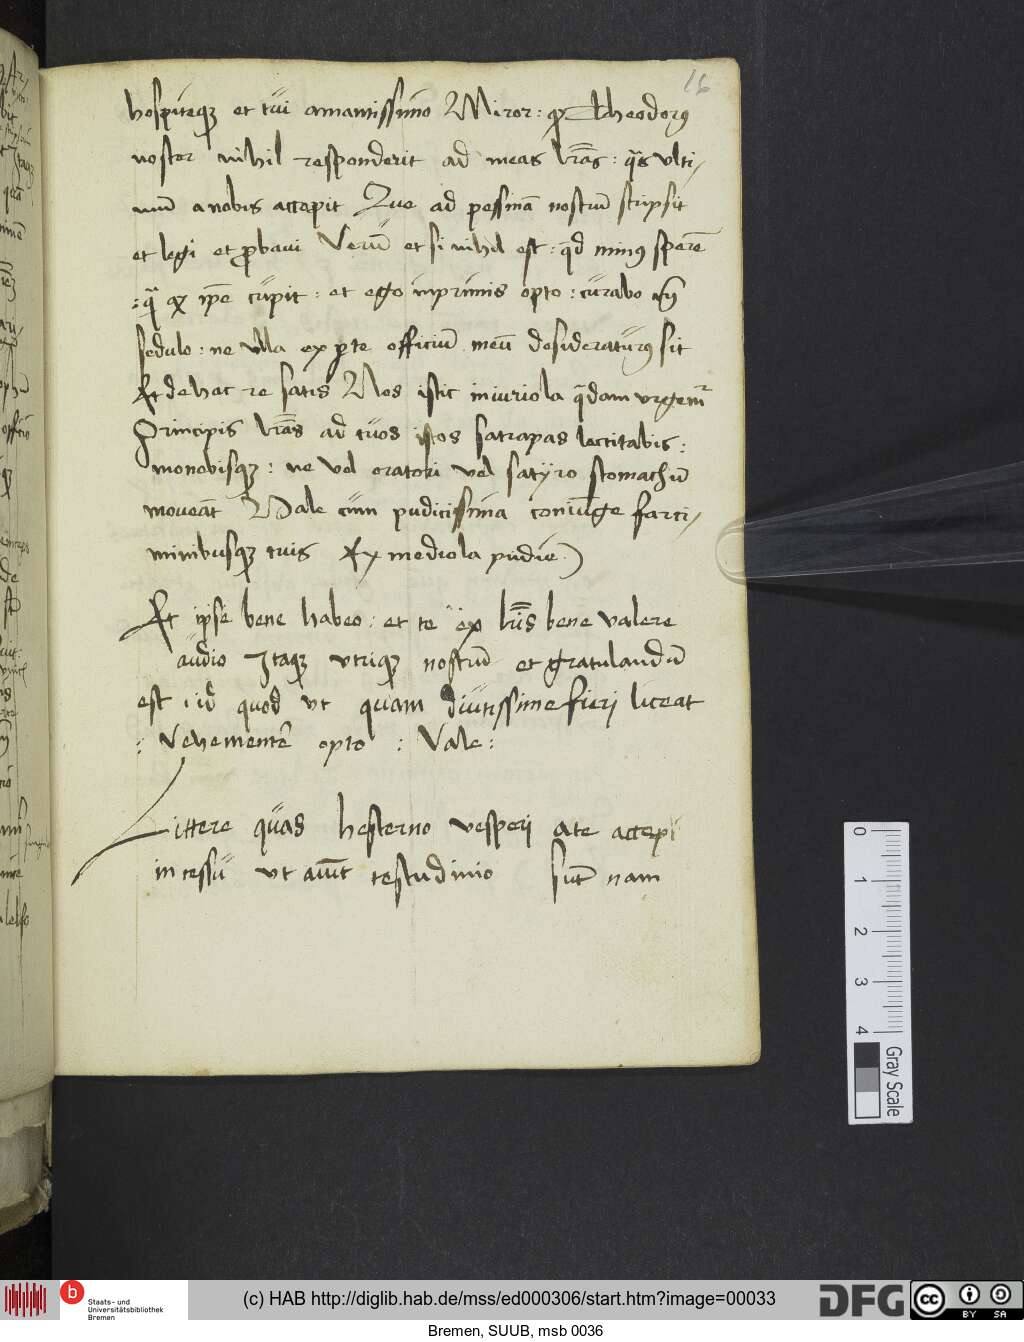 16
hospiteqꝫ et tui amantissimo Miror: qꝫ Theodorꝰ
noster nihil responderit ad meas lr̄as: q̄s ulti/
mū a nobis accepit Que ad pessinā nostrū scripsit
et legi et ꝓbavi Verū et si nihil est: qd̄ minꝰ sperē
: q̄ qꝫ ip̄e cupit: et ego inprimis opto: curabo
sedulo: ne ulla ex ꝑte officiū meū desideraturꝰ sit
Et de hac re satis Nos istic iniuriola q̄dam urgemr̄
Principis lr̄as ad tuos istos satrapas lectitabis:
monebisqꝫ: ne vel oratori vel satyro stomachū
moveāt Vale cum pudicissima coniuge farci/
minibusqꝫ tuis Ex mediola pridie)
Et ipse bene habeo: et te ex lr̄is bene valere
audio Itaqꝫ utriqꝫ nostrū et gratulandū
est id quod ut quam diutissime fieri liceat
: Vehementē opto : Vale:
Littere quas hesterno vesperi a te accepi
incessu ut aiūt testudinio sūt nam
0
1
2
3
4
Gray Scale
b Staats- und
Universitätsbibliothek
Bremen
(c) HAB http://diglib.hab.de/mss/ed000306/start.htm?image=00033
DFG
cc BY SA
Bremen, SUUB, msb 0036